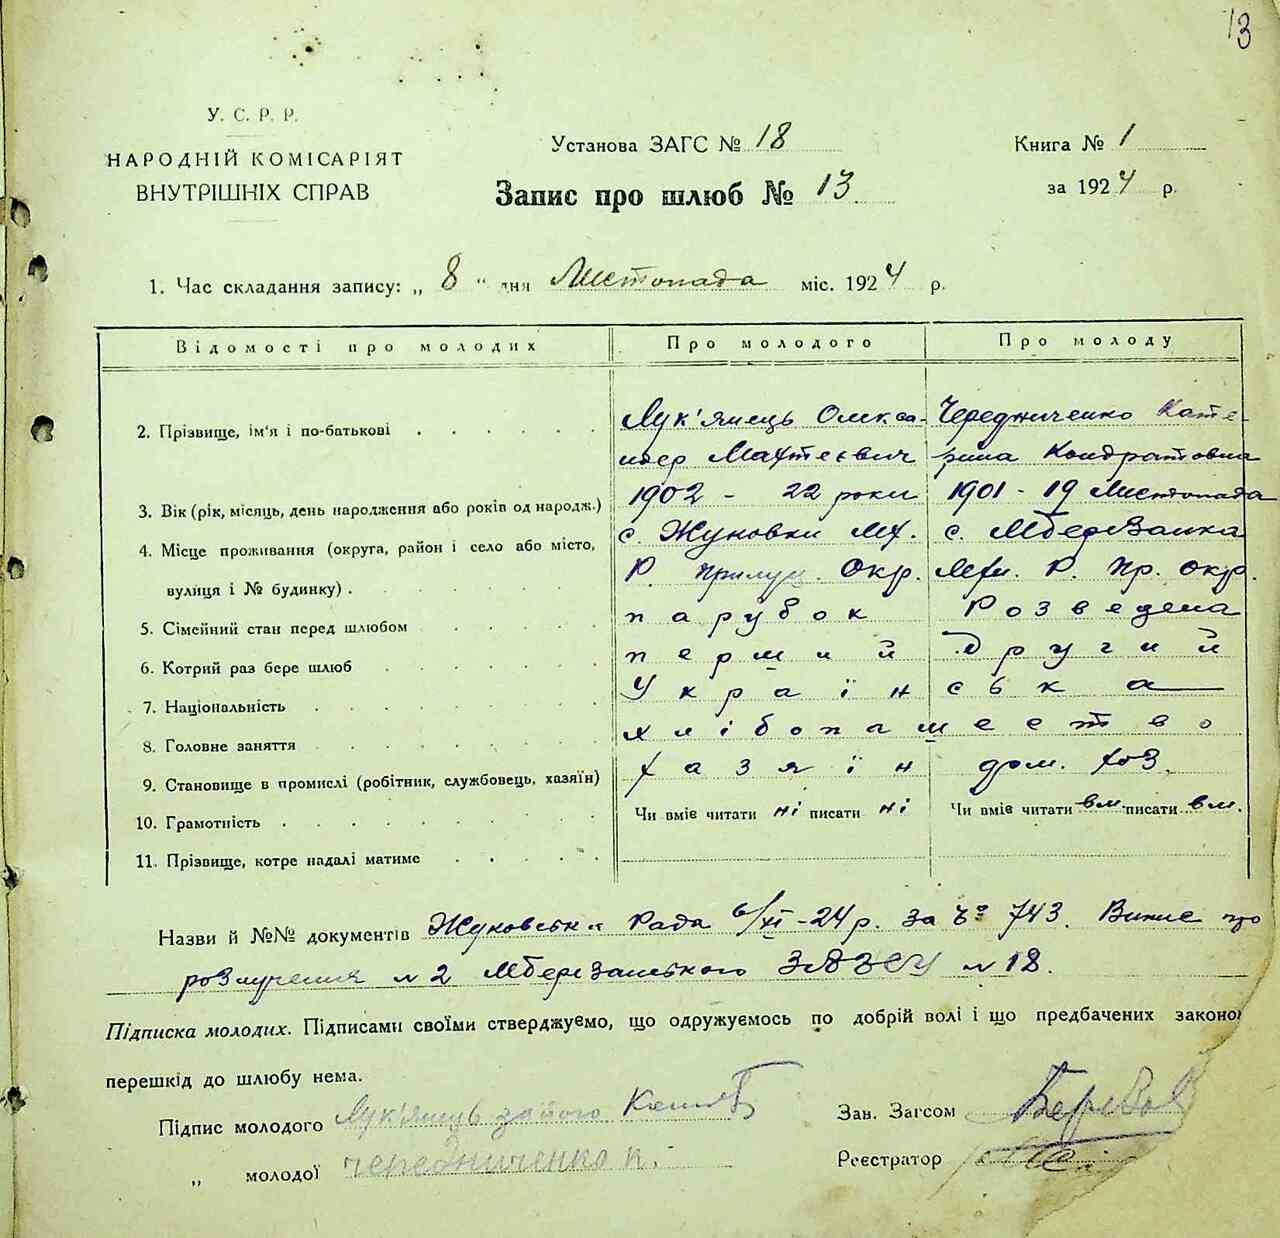 13
У. С. Р. Р.
НАРОДНІЙ КОМІСАРІЯТ
ВНУТРІШНІХ СПРАВ
Установа ЗАГС № 18
Книга № 1
Запис про шлюб № 13
за 1924 р.
1. Час складання запису: „ 8 " дня Листопада міс. 1924 р.
Відомості про молодих Про молодого Про молоду
2. Прізвище, ім'я і по-батькові Лук'янець Олекса- Чередниченко Кате-
ндер Матвеєвич рина Кондратовна
3. Вік (рік, місяць, день народження або років од народж.) 1902 - 22 роки 1901 - 19 Листопада
4. Місце проживання (округа, район і село або місто, с. Жуковки с. МберЕзанка
вулиця і № будинку) . Р. Прилуц. Окр. Р. Пр. Окр.
5. Сімейний стан перед шлюбом парубок Розведена
6. Котрий раз бере шлюб перший другий
7. Національність Українська
8. Головне заняття хлібопашество
9. Становище в промислі (робітник, службовець, хазяїн) хазяїн дом. хоз.
10. Грамотність Чи вміє читати ні писати ні Чи вміє читати вм. писати вм.
11. Прізвище, котре надалі матиме
Назви й №№ документів Жуковська Рада 6/XI-24 р. за Ч° 743. Випис про
розлучення № 2 Мберезанського ЗАГСУ № 18.
Підписка молодих. Підписами своїми стверджуємо, що одружуємось по добрій волі і що предбачених законо
перешкід до шлюбу нема.
Підпис молодого Лук'янець за його
Зав. Загсом
„ молодої Чередниченко К.
Реєстратор